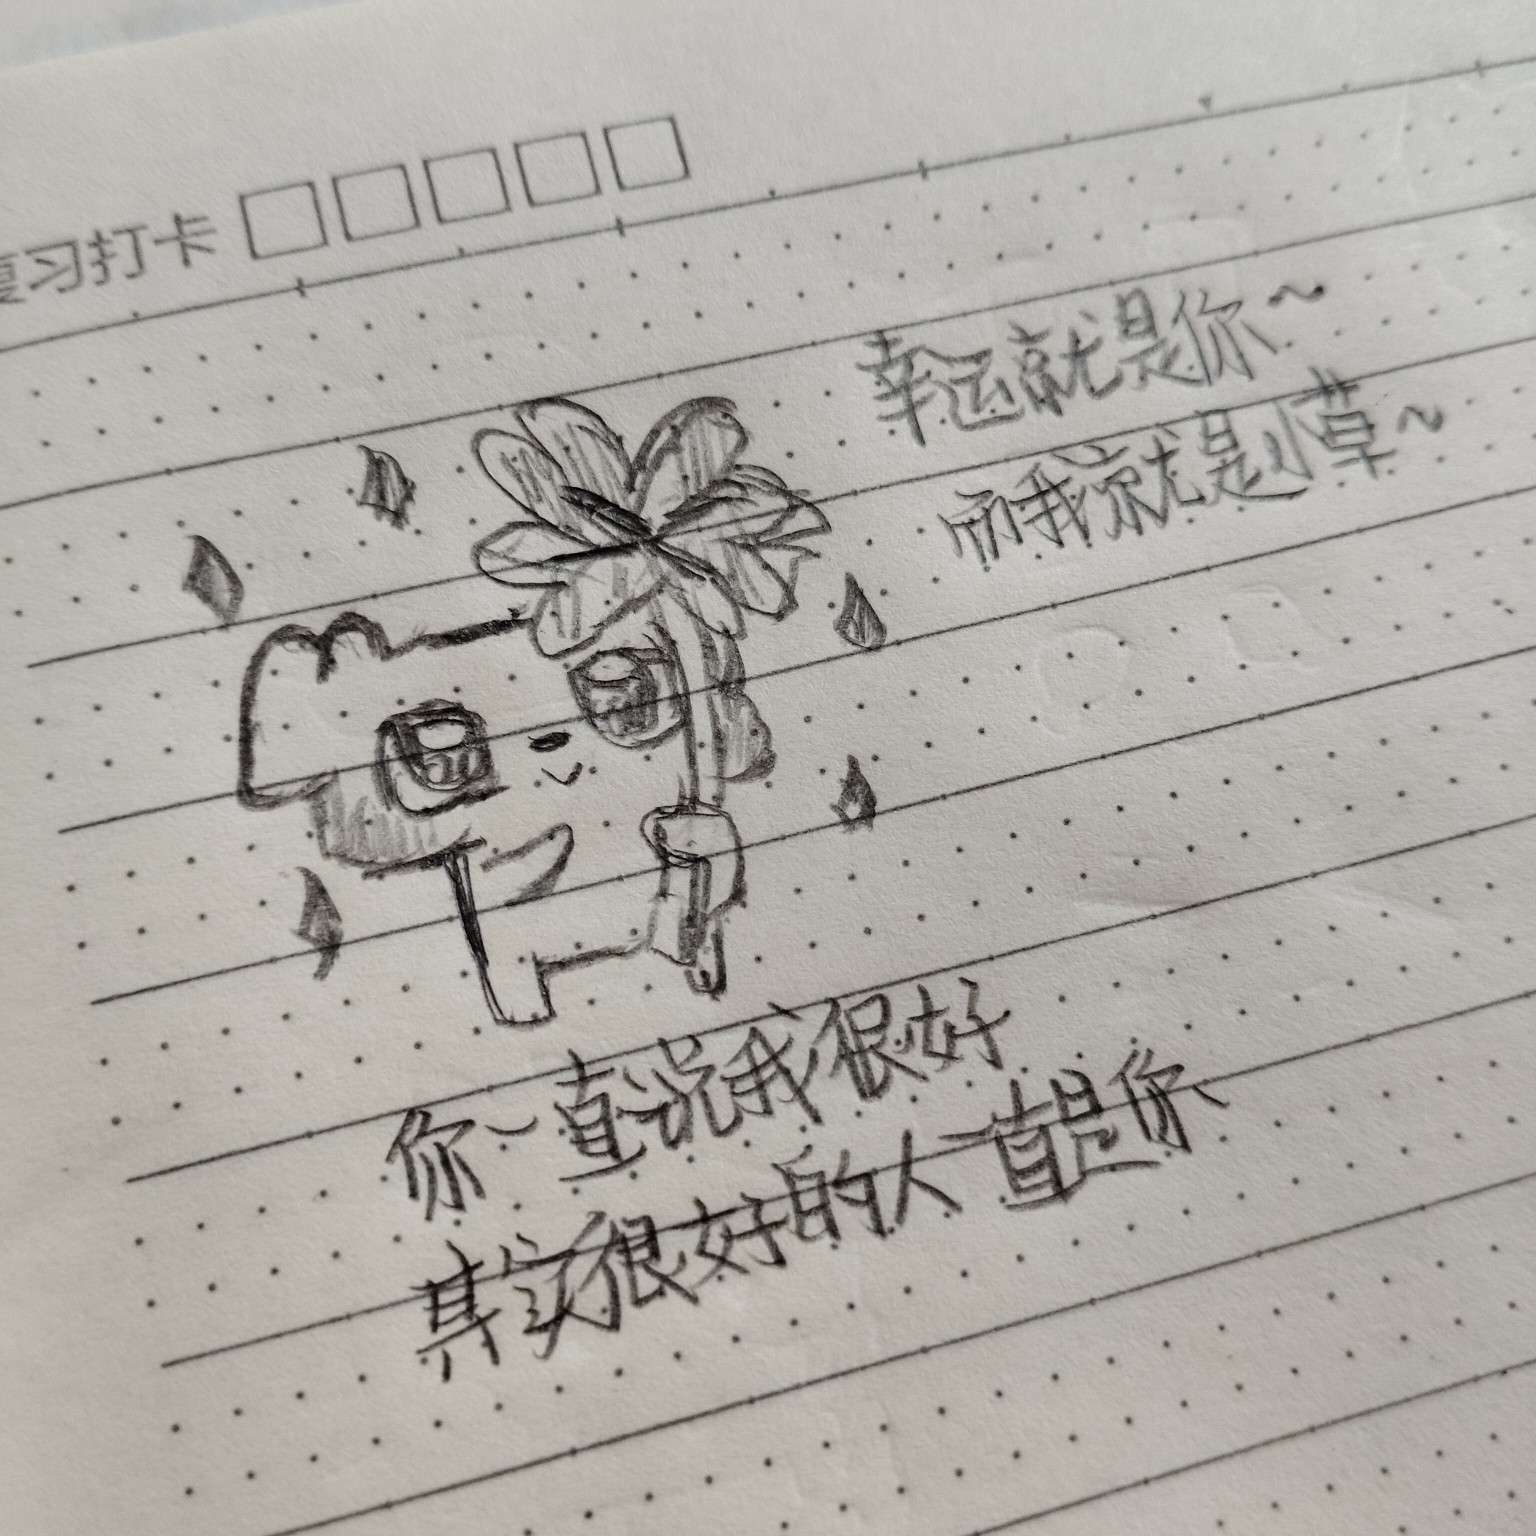 复习打卡
幸运就是你~
而我就是小草~
你一直说我很好
其实很好的人一直是你